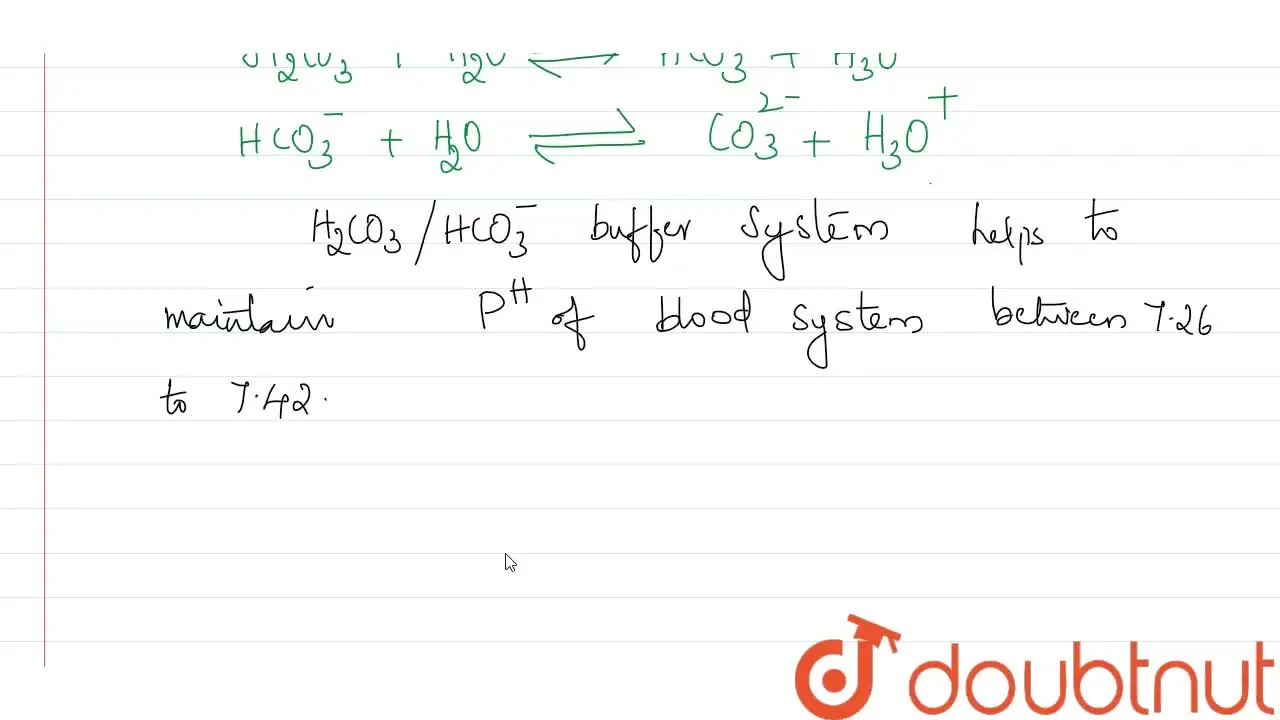 H₂CO₃ + H₂O ⇌ HCO₃ + H₃O
HCO₃⁻ + H₂O ⇌ CO₃²⁻ + H₃O⁺
H₂CO₃/HCO₃⁻ buffer system helps to
maintain Pᴴ of blood system between 7.26
to 7.42.
doubtnut